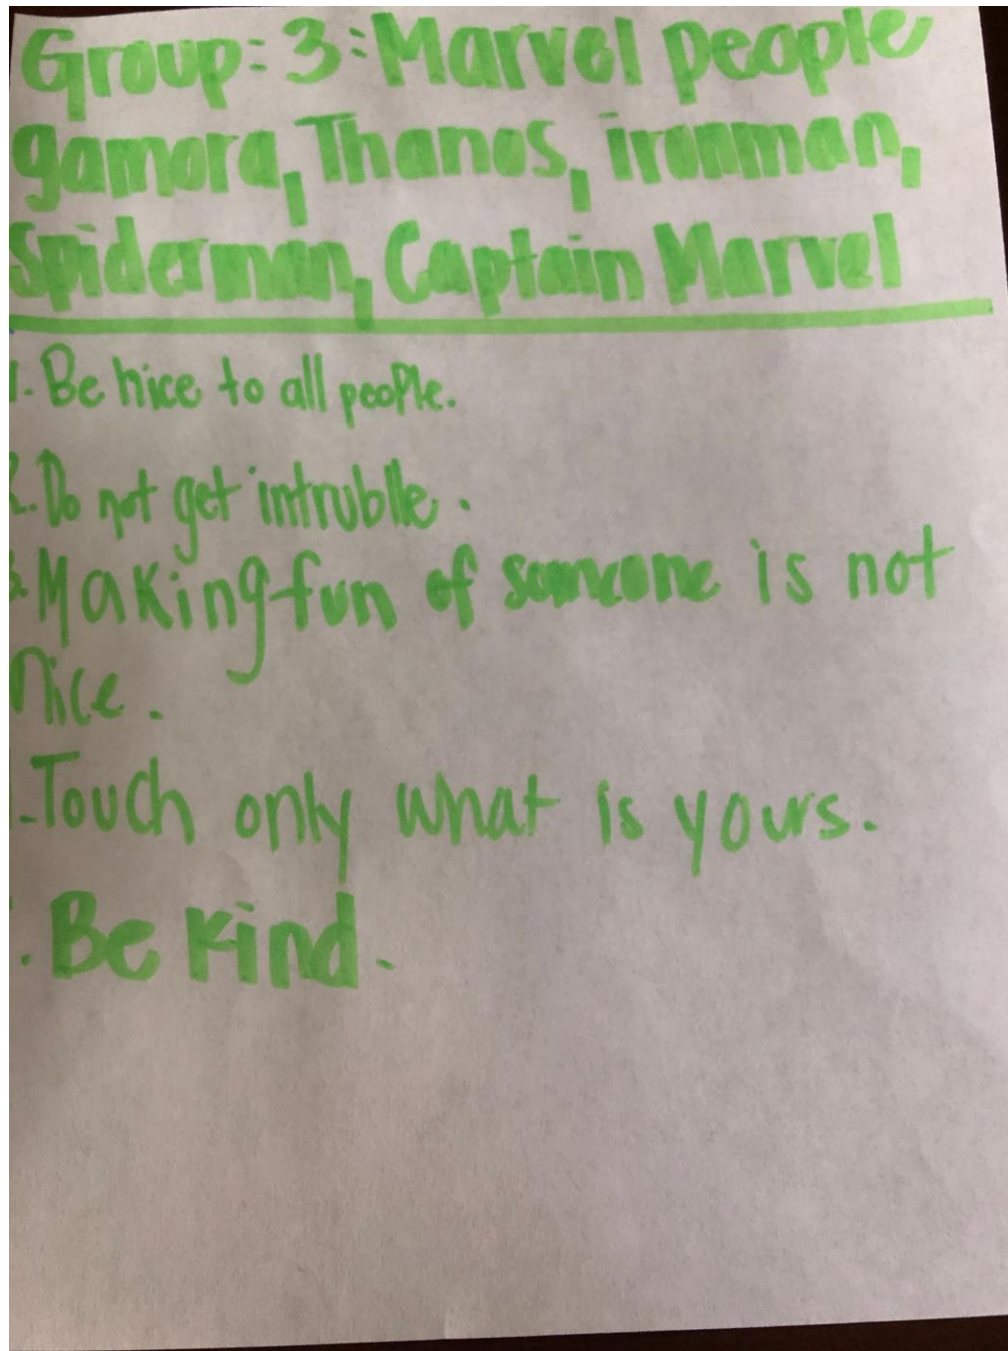 Group: 3: Marvel people
gamora, Thanos, ironman,
Spiderman, Captain Marvel
1. Be nice to all people.
2. Do not get intrublle.
3. Making fun of someone is not
nice.
. Touch only what is yours.
. Be kind.